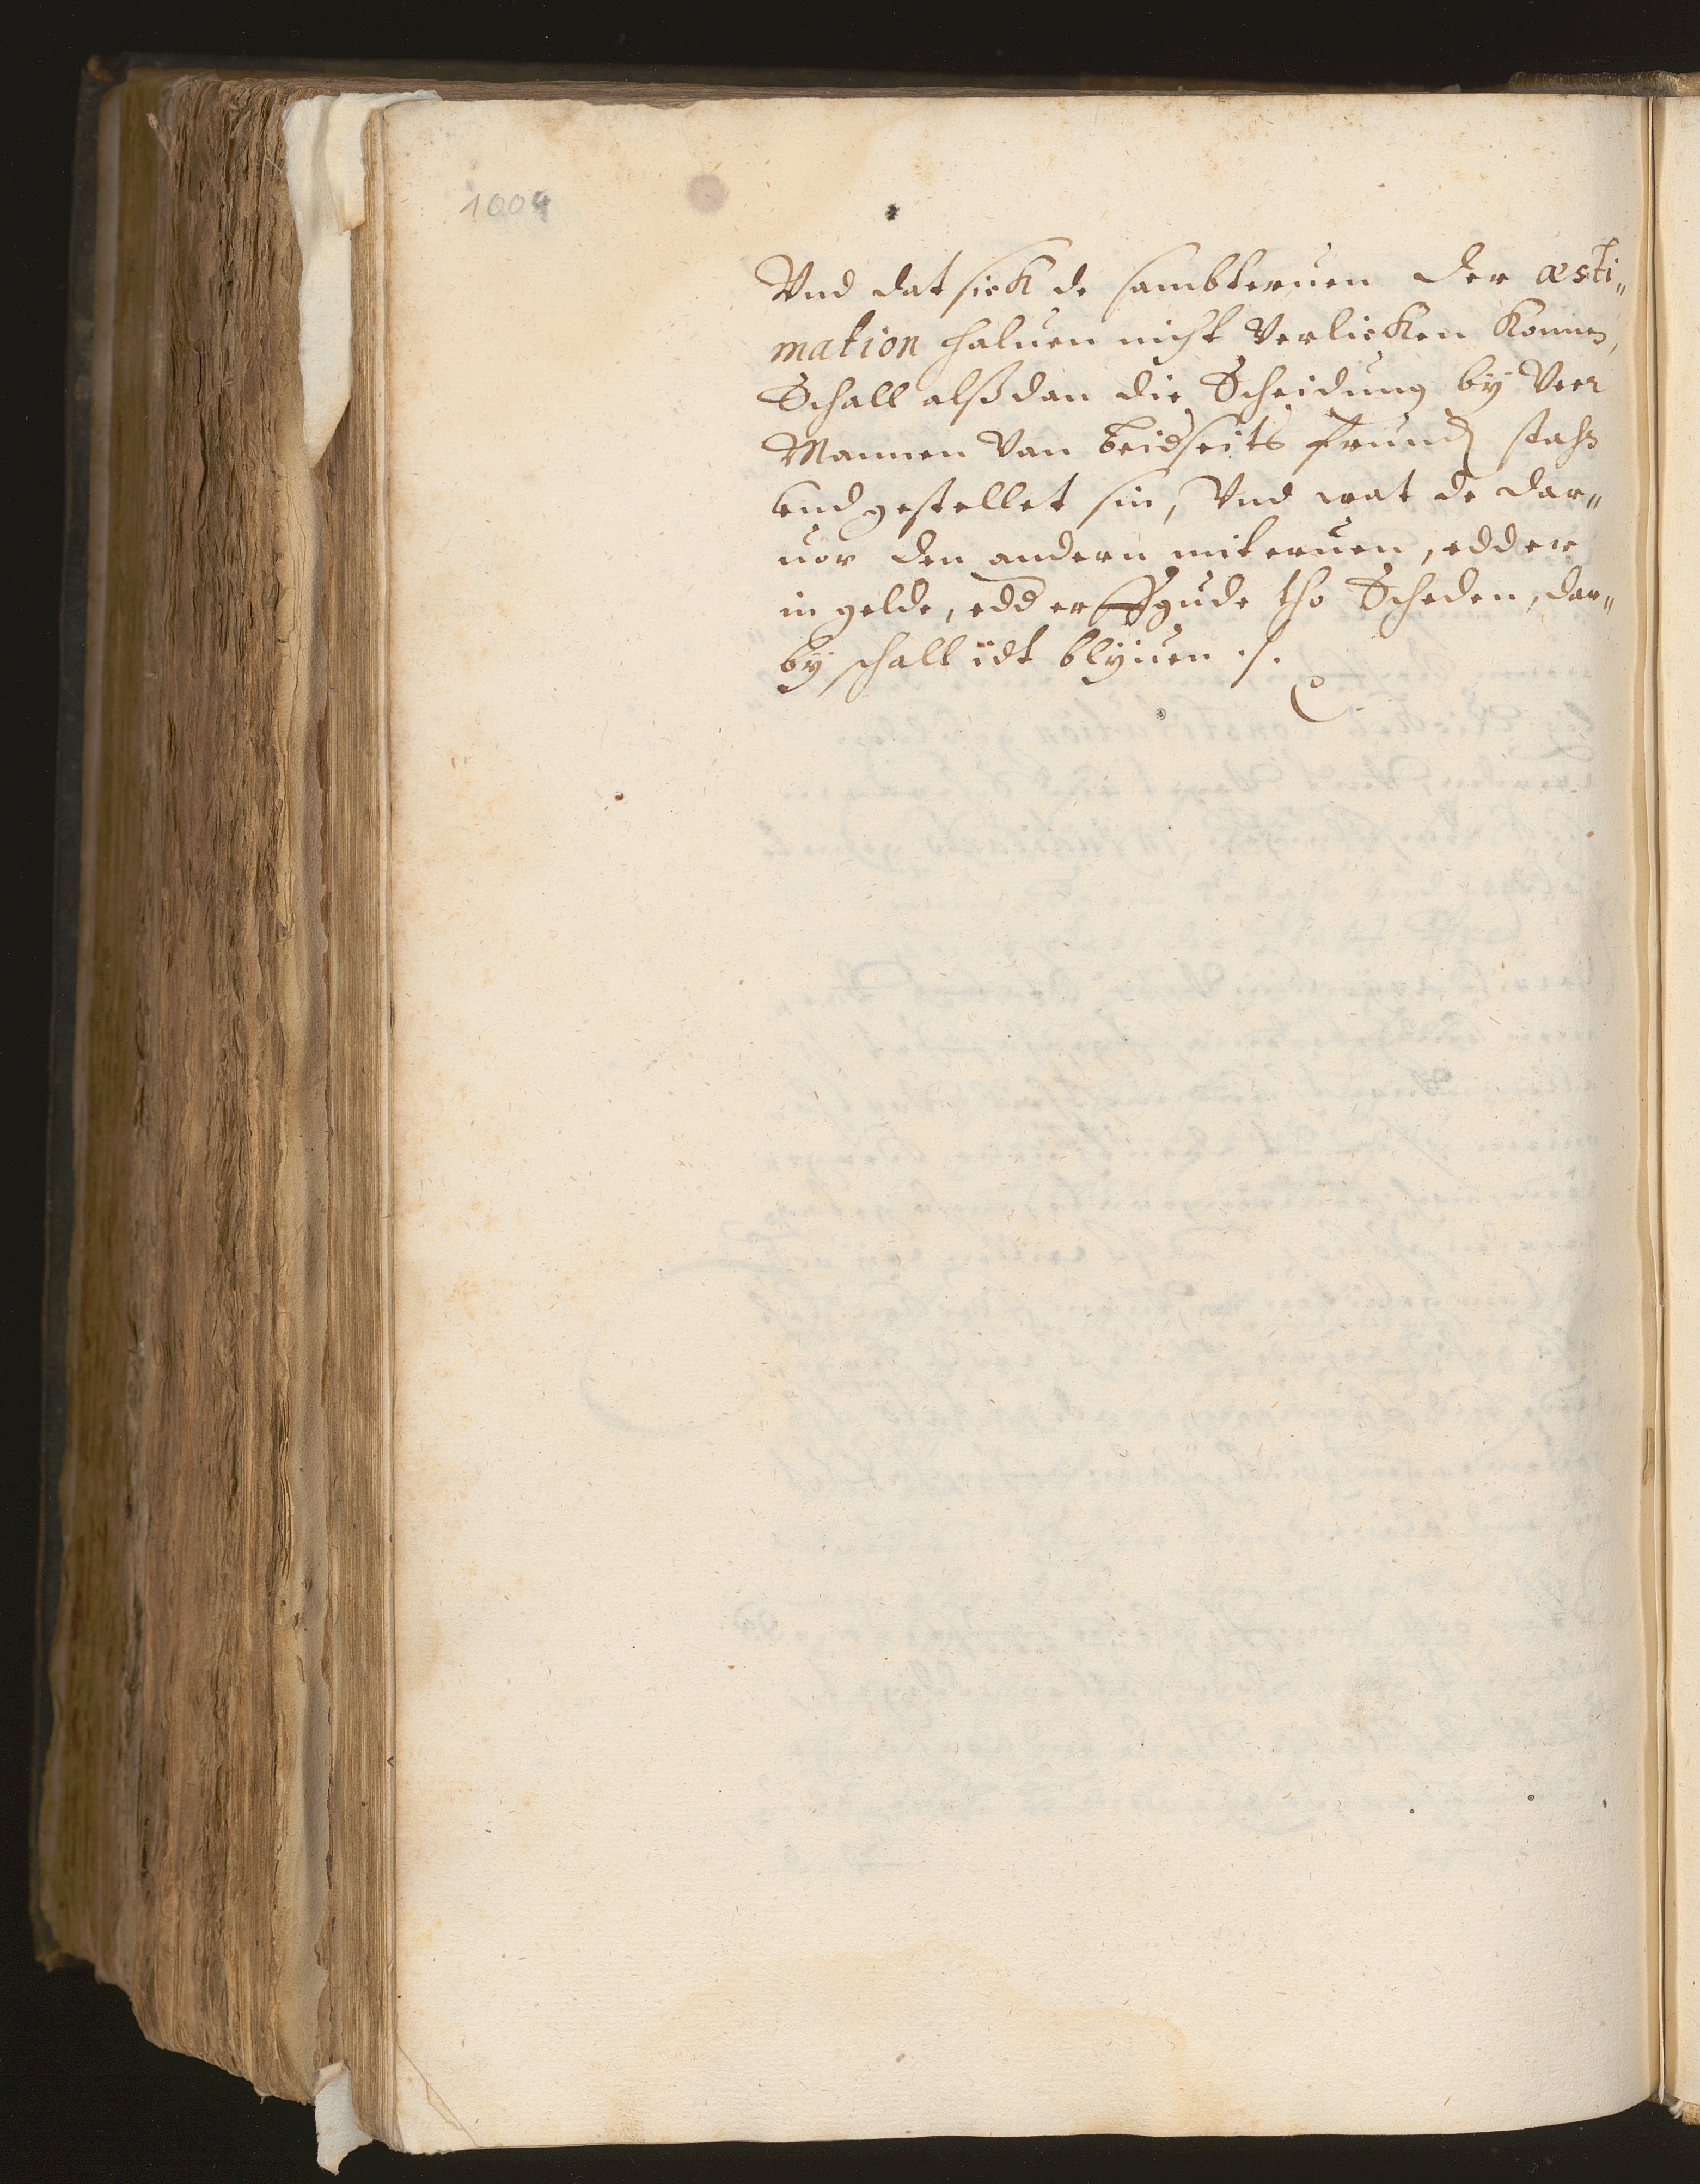 1004
Vnd dat sick de sambteruen der æsti„
mation haluen nicht Verlicken Konnen,
Schall alßdan die Scheidung by Veer
Mannen Van beidseits frund
vnd gestellet sin, Vnd wat de dar„
uor den andern miteruen, edder
in gelde, edd erffgude tho Scheden, dar„
by schall idt blyuen ./.